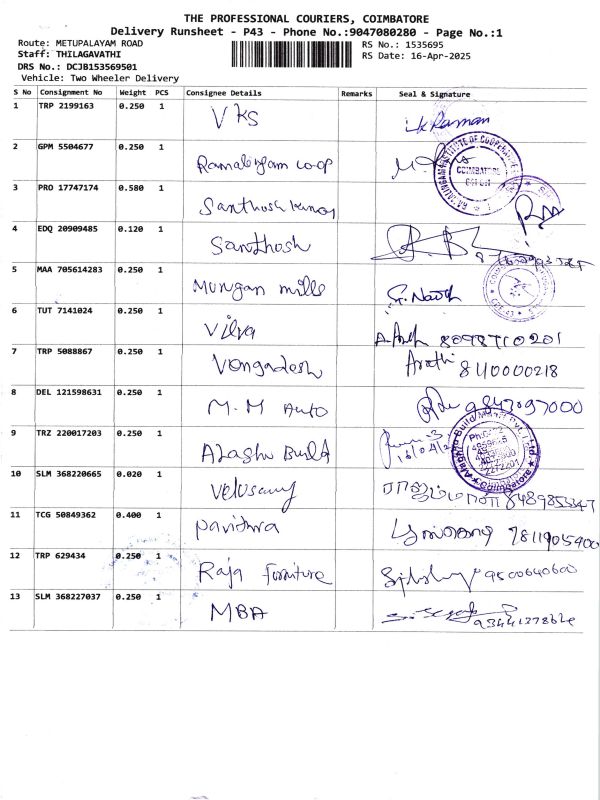 THE PROFESSIONAL COURIERS, COIMBATORE
Delivery Runsheet - P43 - Phone No.:9047080280 - Page No.:1
Route: METUPALAYAM ROAD
RS No.: 1535695
Staff: THILAGAVATHI
RS Date: 16-Apr-2025
DRS No.: DCJB153569501
Vehicle: Two Wheeler Delivery
S No Consignment No Weight PCS Consignee Details Remarks Seal & Signature
1 TRP 2199163 0.250 1 VKS
2 GPM 5504677 0.250 1 Ramalingam co-op
3 PRO 17747174 0.580 1 Santhosh
4 EDQ 20909485 0.120 1 Santhosh
5 MAA 705614283 0.250 1 Murugan mills
6 TUT 7141024 0.250 1 Vilva 8098710201
7 TRP 5088867 0.250 1 Vengadesh Arathi 8110000218
8 DEL 121598631 0.250 1 M.M Auto
9 TRZ 220017203 0.250 1 Build
10 SLM 368220665 0.020 1 Velusamy
11 TCG 50849362 0.400 1 pavithra
12 TRP 629434 0.250 1 Raja Furniture 9500640600
13 SLM 368227037 0.250 1 MBA